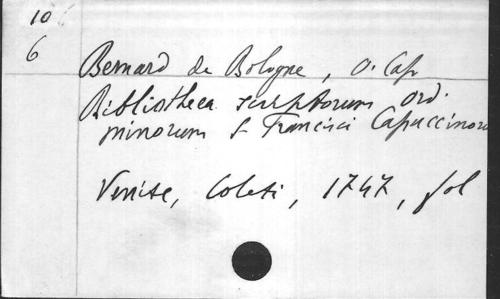 10
6
Bernard de Bologne, O. Cap
Bibliotheca scriptorum ord.
minorum S Francisci Capuccinoru
Venise, Coleti, 1747, fol